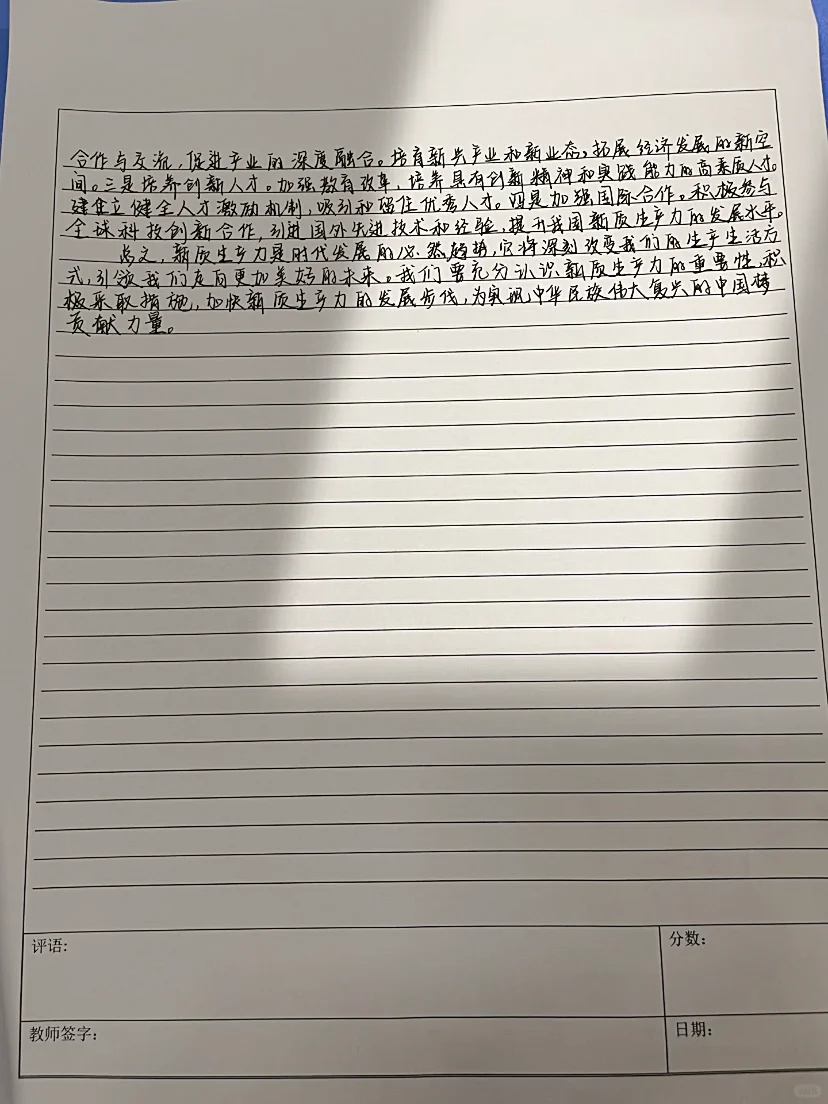 合作与交流，促进产业的深度融合。培育新兴产业和新业态，拓展经济发展的新空
间。三是培养创新人才。加强教育改革，培养具有创新精神和实践能力的高素质人才。
建立健全人才激励机制，吸引和留住优秀人才。四是加强国际合作。积极参与
全球科技创新合作，引进国外先进技术和经验，提升我国新质生产力的发展水平。
总之，新质生产力是时代发展的必然趋势，它将深刻改变我们的生产生活方
式，引领我们走向更加美好的未来。我们要充分认识新质生产力的重要性，积
极采取措施，加快新质生产力的发展步伐，为实现中华民族伟大复兴的中国梦
贡献力量。
评语:
分数:
教师签字:
日期: